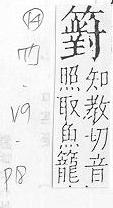 知教切音
照取魚籠
⑭
竹
-
V9
-
P8